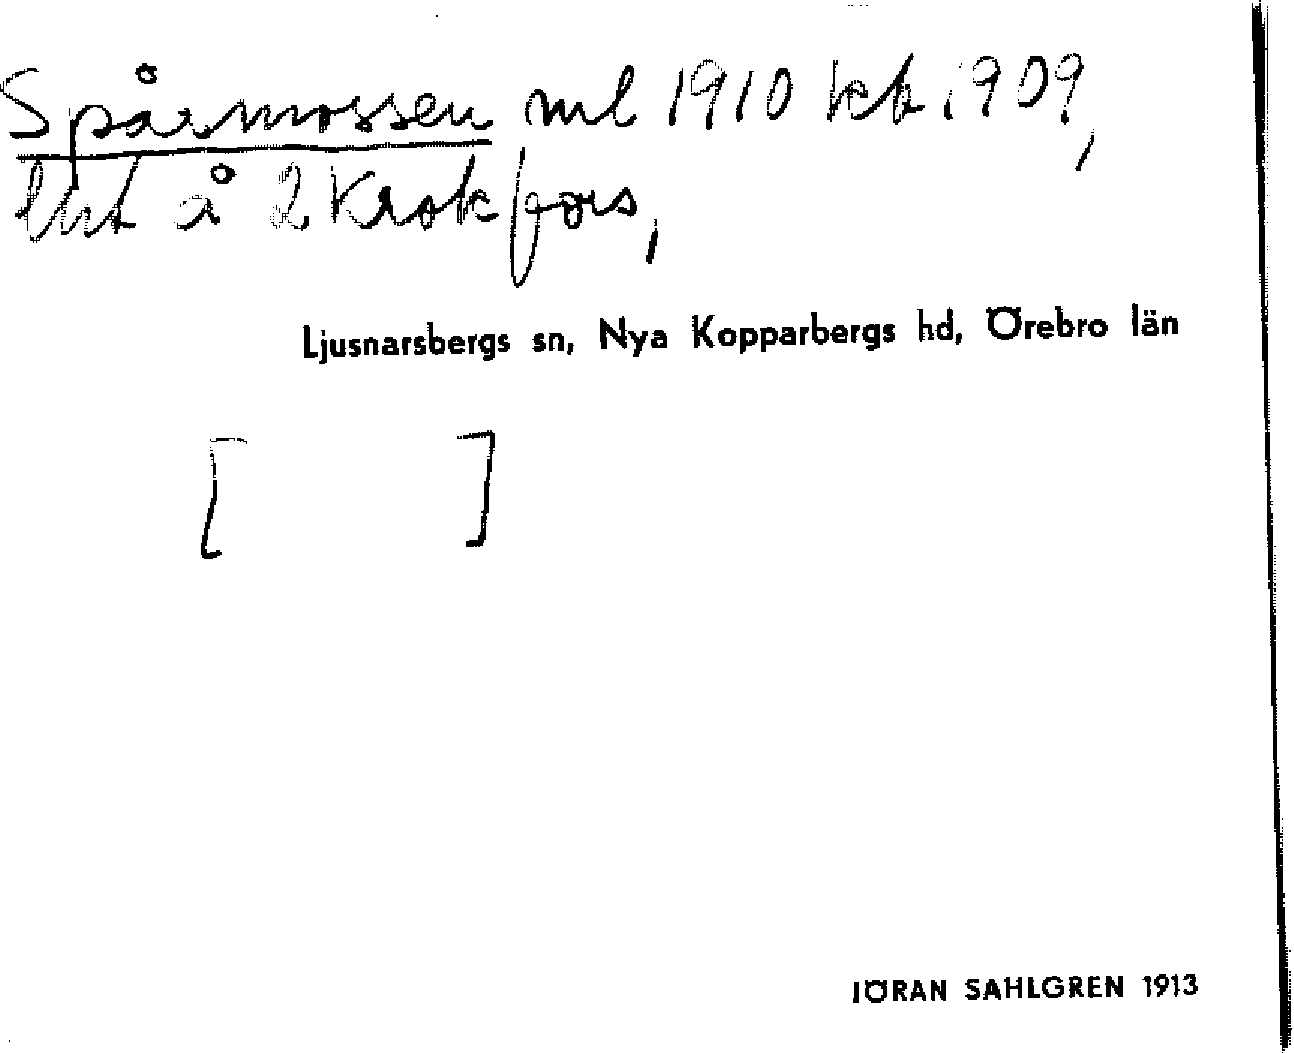 Spårmossen ml 1910 kbk 1909,
lht å 2 Krokfors,
Ljusnarsbergs sn, Nya Kopparbergs hd, Örebro län
[ ]
JÖRAN SAHLGREN 1913